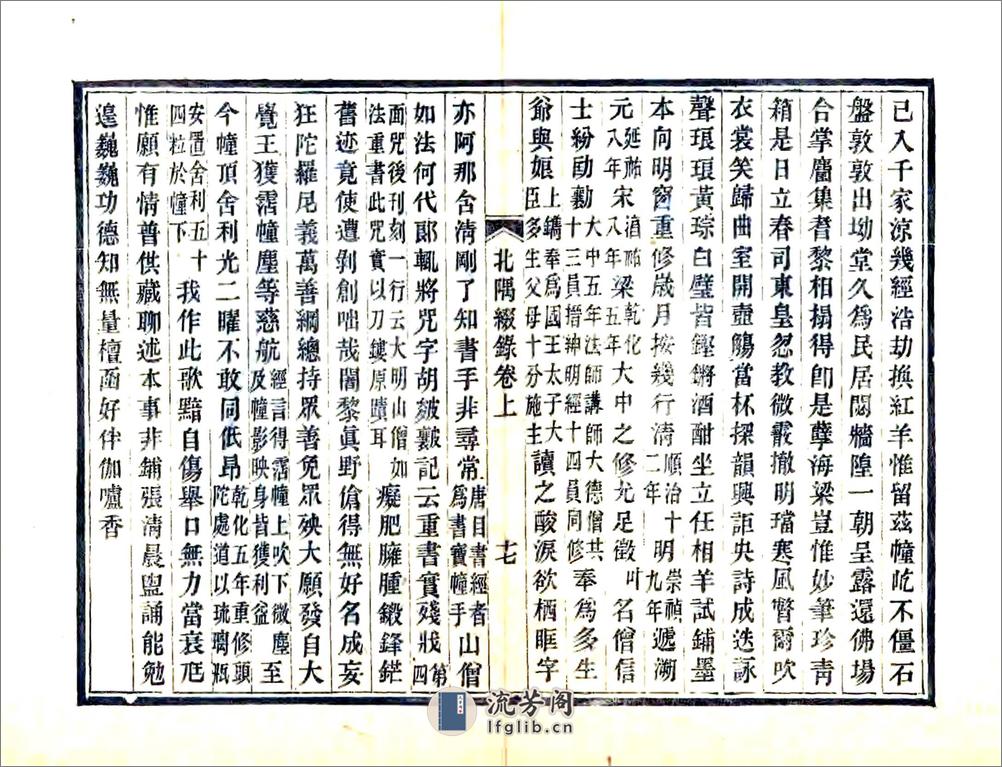 已入千家涼幾經浩劫換紅羊惟留茲幢屹不僵石
盤敦敦出坳堂久爲民居閟牆隍一朝呈露還佛場
合掌麕集耆黎相搨得卽是孽海梁豈惟妙筆珍青
箱是日立春司東皇忽教微霰撤明璫寒風瞥爾吹
衣裳笑歸曲室開壺觴當杯探韻興詎央詩成迭詠
聲琅琅黃琮白璧皆鏗鏘酒酣坐立任相羊試鋪墨
本向明窗重修歲月按幾行清順治十二年明崇禎九年遞溯
元延祐八年宋湻祐八年梁乾化五年大中之修尤足徵叶名僧信
士紛勔勷大中五年法師講師大德僧共十三員搢紳明經十四員同修奉爲多生
爺與娘上鐫奉爲國王太子大臣多生父母十分施主讀之酸淚欲栖眶字
北隅綴錄卷上 十七
亦阿那含清剛了知書手非尋常唐目書經者爲書寶幢手山僧
如法何代郞輒將咒字胡皴記云重書實殘戕第四
面咒後刊刻一行云大明山僧如法重書此咒實以刀鏤原蹟耳癡肥臃腫鍛鋒鋩
舊迹竟使遭剝創咄哉闍黎眞野傖得無好名成妄
狂陀羅尼義萬善綱總持眾善免眾殃大願發自大
覺王獲霑幢塵等慈航經言得霑幢上吹下微塵及幢影映身皆獲利益至
今幢頂舍利光二曜不敢同低昂乾化五年重修頭陀處道以琉璃甁
安置舍利五十四粒於幢下我作此歌黯自傷舉口無力當衰尫
惟願有情普供藏聊述本事非鋪張淸晨盥誦能勉
遑巍巍功德知無量檀函好伴伽嚧香
流芳阁
lfglib.cn